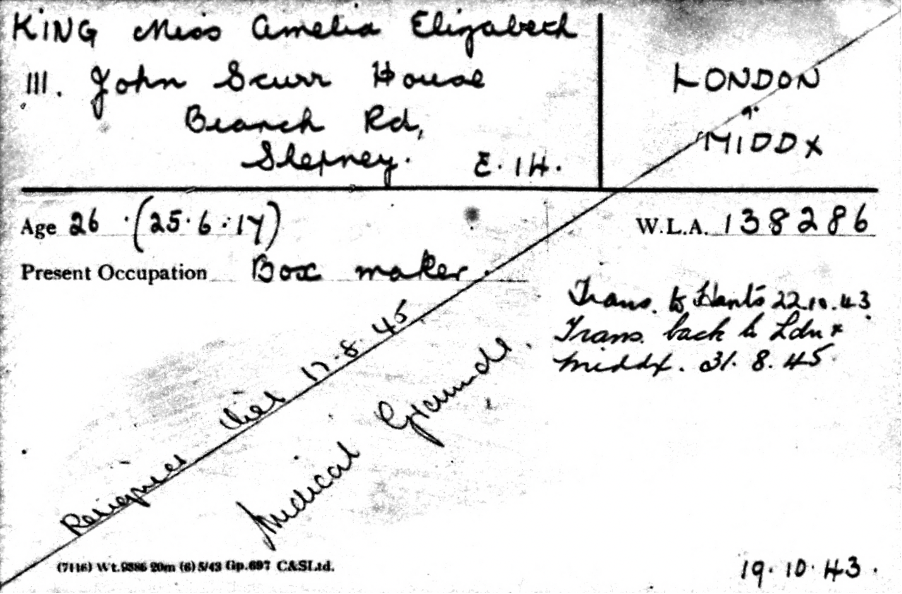 KING Miss Amelia Elizabeth
111. John Scurr House
Branch Rd,
Stepney. E.14.
LONDON
&
MIDDX
Age 26 (25.6.17)
W.L.A. 138286
Present Occupation Box maker.
Trans. to Hants 22.10.43
Trans. back to Ldn &
Middx. 31.8.45.
Resigned 17.8.45.
Medical Grounds.
(7116) Wt.9386 20m (6) 5/43 Gp.697 C&SLtd.
19.10.43.